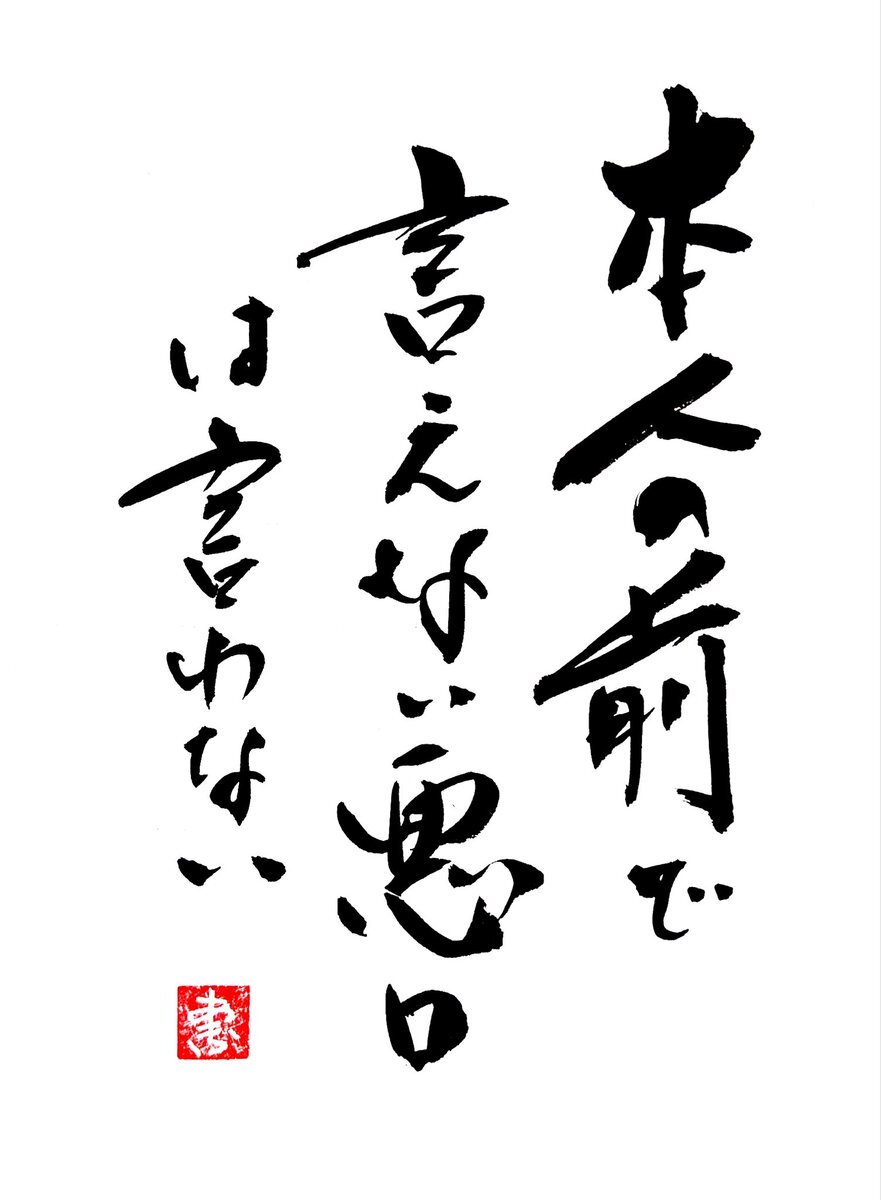 本人の前で
言えない悪口
は言わない